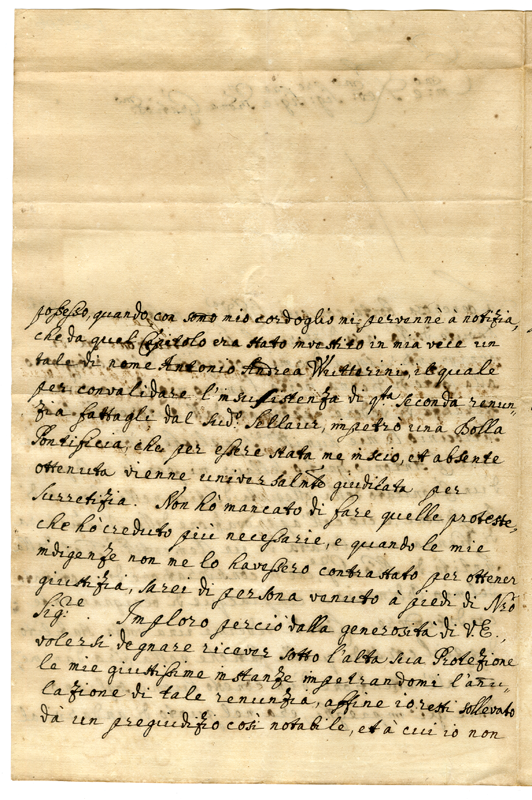 possesso, quando con sono mio cordoglio mi pervenne à notizia,
che da quel Capitolo era stato investito in mia vece un
tale di nome Antonio Andrea Whitterini, il quale
per convalidare l'insusistenza di qta seconda renun-
zia fattagli dal sud.o Sellaur, impetrò una Bolla
Pontificia, che per essere stata me inscio, et absente
ottenuta vienne universalmte giudicata per
surretizia. Non hò mancato di fare quelle proteste,
che hò creduto più necessarie, e quando le mie
indigenze non me lo havessero contrastato per ottener
giustizia, sarei di persona venuto à piedi di Nrõ
Sig.re Imploro perciò dalla generosità di V.E.,
volersi degnare ricever sotto l'alta sua Protezione
le mie giustissime instanze impetrandomi l'anu-
lazione di tale renunzia, affine io resti sollevato
dà un pregiudizio così notabile, et à cui io non